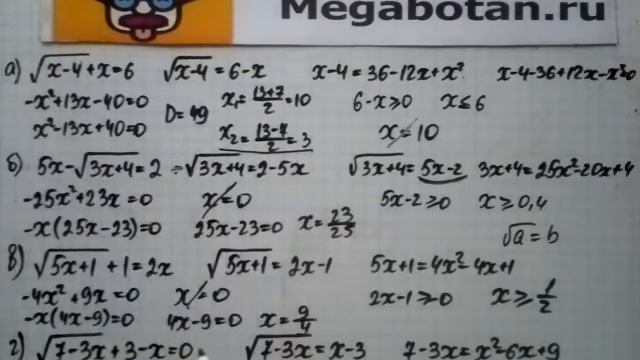 Megabotan.ru
а) √(x-4)+x=6   √(x-4) = 6-x   x-4=36-12x+x²   x-4-36+12x-x²=0
-x²+13x-40=0   D=49   x₁=(13+7)/2=10   6-x≥0   x≤6
x²-13x+40=0   x₂=(13-7)/2=3   x=10
б) 5x-√(3x+4)=2   -√(3x+4)=2-5x   √(3x+4)=5x-2   3x+4=25x²-20x+4
-25x²+23x=0   x=0   5x-2≥0   x≥0,4
-x(25x-23)=0   25x-23=0   x=23/25   √a=b
в) √(5x+1)+1=2x   √(5x+1)=2x-1   5x+1=4x²-4x+1
-4x²+9x=0   x=0   2x-1≥0   x≥1/2
-x(4x-9)=0   4x-9=0   x=9/4
г) √(7-3x)+3-x=0   √(7-3x)=x-3   7-3x=x²-6x+9